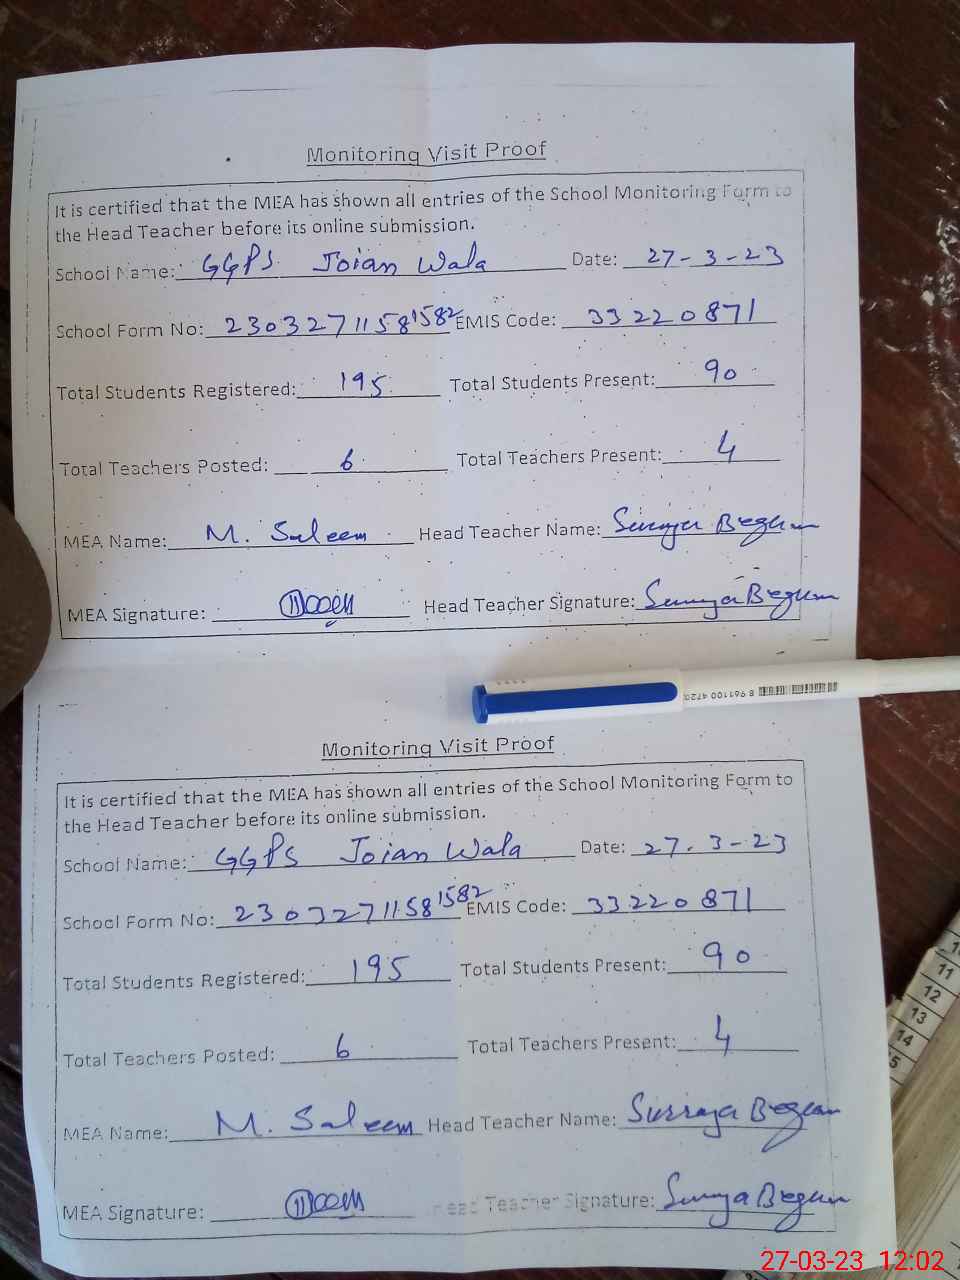 Monitoring Visit Proof
It is certified that the MEA has shown all entries of the School Monitoring Form to
the Head Teacher before its online submission.
School Name: GGPS Joian Wala Date: 27-3-23
School Form No: 2303271158 1582 EMIS Code: 33220871
Total Students Registered: 195 Total Students Present: 90
Total Teachers Posted: 6 Total Teachers Present: 4
MEA Name: M. Saleem Head Teacher Name: Surraya Begum
MEA Signature: Head Teacher Signature: Surraya Begum
8 961100 4720
Monitoring Visit Proof
It is certified that the MEA has shown all entries of the School Monitoring Form to
the Head Teacher before its online submission.
School Name: GGPS Joian Wala Date: 27.3-23
School Form No: 2303271158 1582 EMIS Code: 33220871
Total Students Registered: 195 Total Students Present: 90
Total Teachers Posted: 6 Total Teachers Present: 4
MEA Name: M. Saleem Head Teacher Name: Surraya Begum
MEA Signature: Head Teacher Signature: Surraya Begum
11
12
13
14
27-03-23 12:02